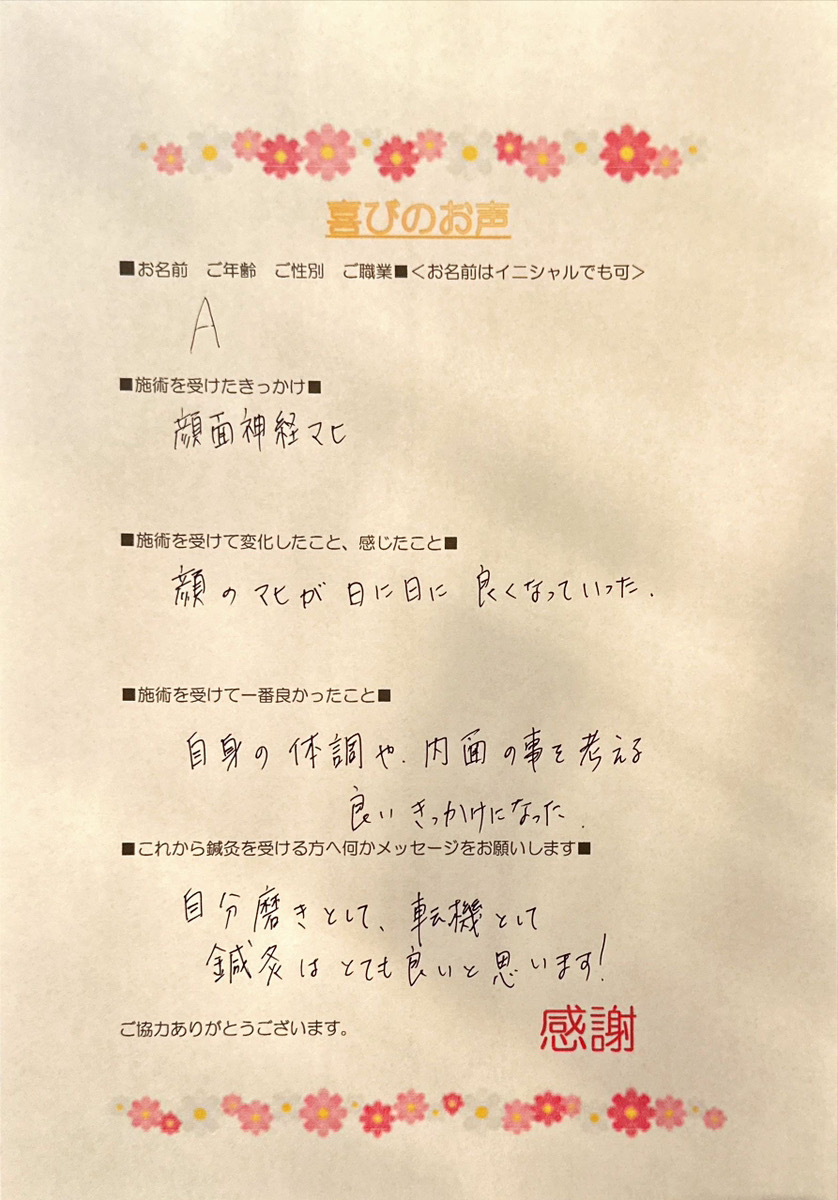 喜びのお声
■お名前　ご年齢　ご性別　ご職業■＜お名前はイニシャルでも可＞
A
■施術を受けたきっかけ■
顔面神経マヒ
■施術を受けて変化したこと、感じたこと■
顔のマヒが日に日に良くなっていった.
■施術を受けて一番良かったこと■
自身の体調や、内面の事を考える
良いきっかけになった.
■これから鍼灸を受ける方へ何かメッセージをお願いします■
自分磨きとして、転機として
鍼灸はとても良いと思います!
ご協力ありがとうございます。
感謝